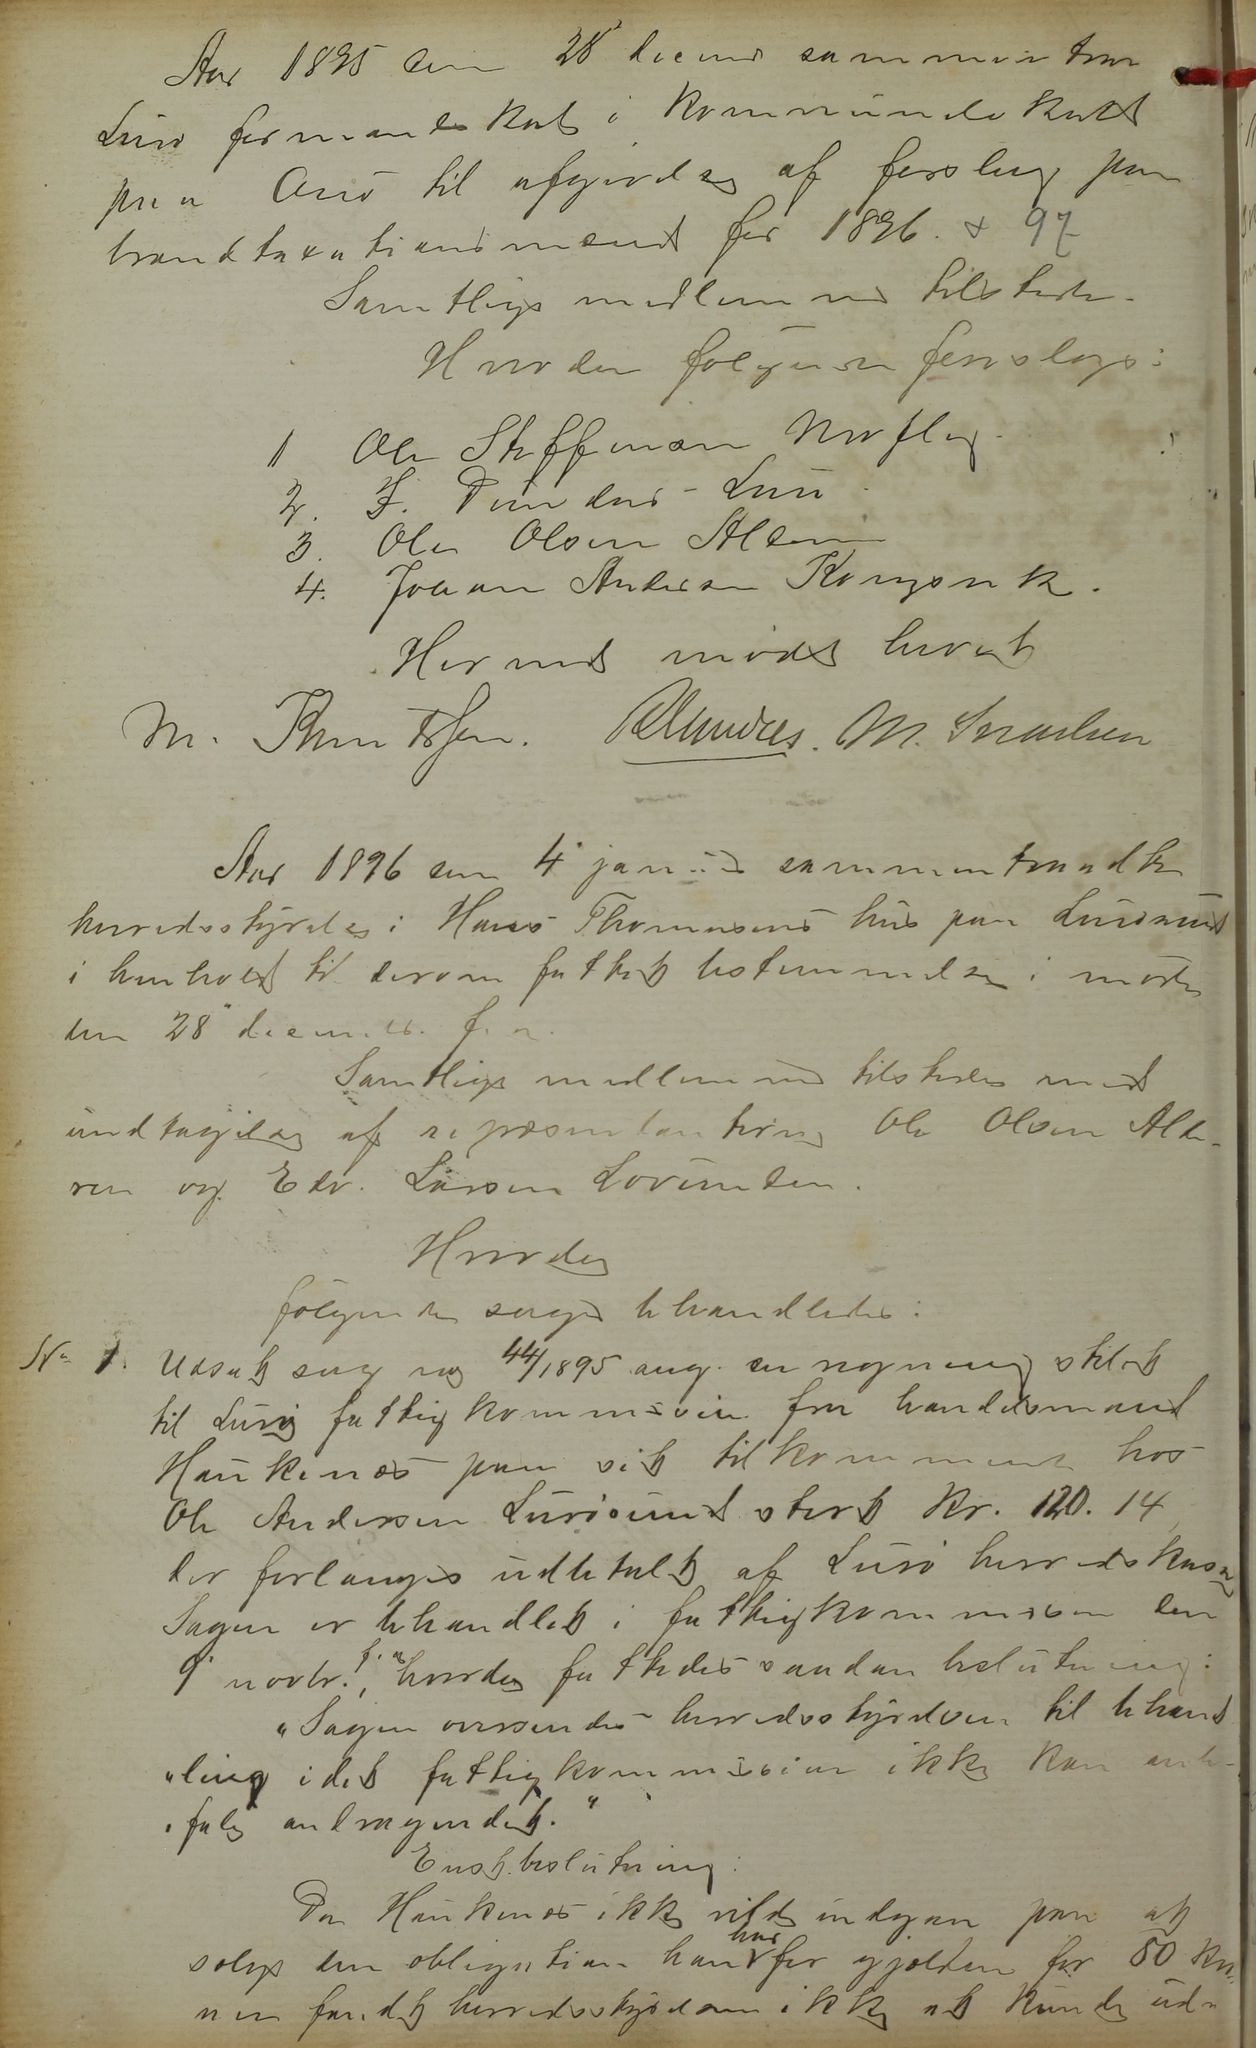 Aar 1895 den 28' decemb sammentraa
Lurö formandskab i kommunelokalet
paa Onö til afgivelse af forslag paa
brandtaxationsmænd for 1896. & 97
Samtlige medlemmer tilstede.
Hvorden følgende foresloges:
1 Ole Steffensen
2. F. Dundas - Lurö
3. Ole Olsen Alderen
4. Johan Andersen Kongsvik.
Hermed mödet hævet
M. Knutssen. Dundas. M. Israelsen
Aar 1896 den 4' januar sammentraadte
herredsstyrelse i Hans Thomasens hus paa Lurösund
i henhold til derom fattet bestemmelse i möde
den 28" decemb. f. a.
Samtlige medlemmer tilstede med
undtagelse af repræsentanterne Ole Olsen Alde-
ren og Edv. Larsen Lovunden.
Hvorda
fölgende sager behandledes:
No 1. Udsat sag no 44/1895 ang. en regning stilet
til Lurö fattigkommission fra handelsmand
Haukenæs paa sit tilkommende hos
Ole Andersen Lurösund stort Kr. 120. 14
der forlanges udbetalt af Lurö herredskasse
Sagen er behandlet i fattigkommission den
9' novbr. f. a., hvorda fattedes saadan beslutning:
"Sagen oversendes herredsstyrelsen til behand
"ling idet fattigkommission ikke kan anbe-
"fale andragendet."
Enst. beslutning:
Da Haukenæs ikke vilde indgaa paa at
solge den obligation han har for gjælden for 50 kro
ner fandt herredsstyrelsen ikke at kunde ud-